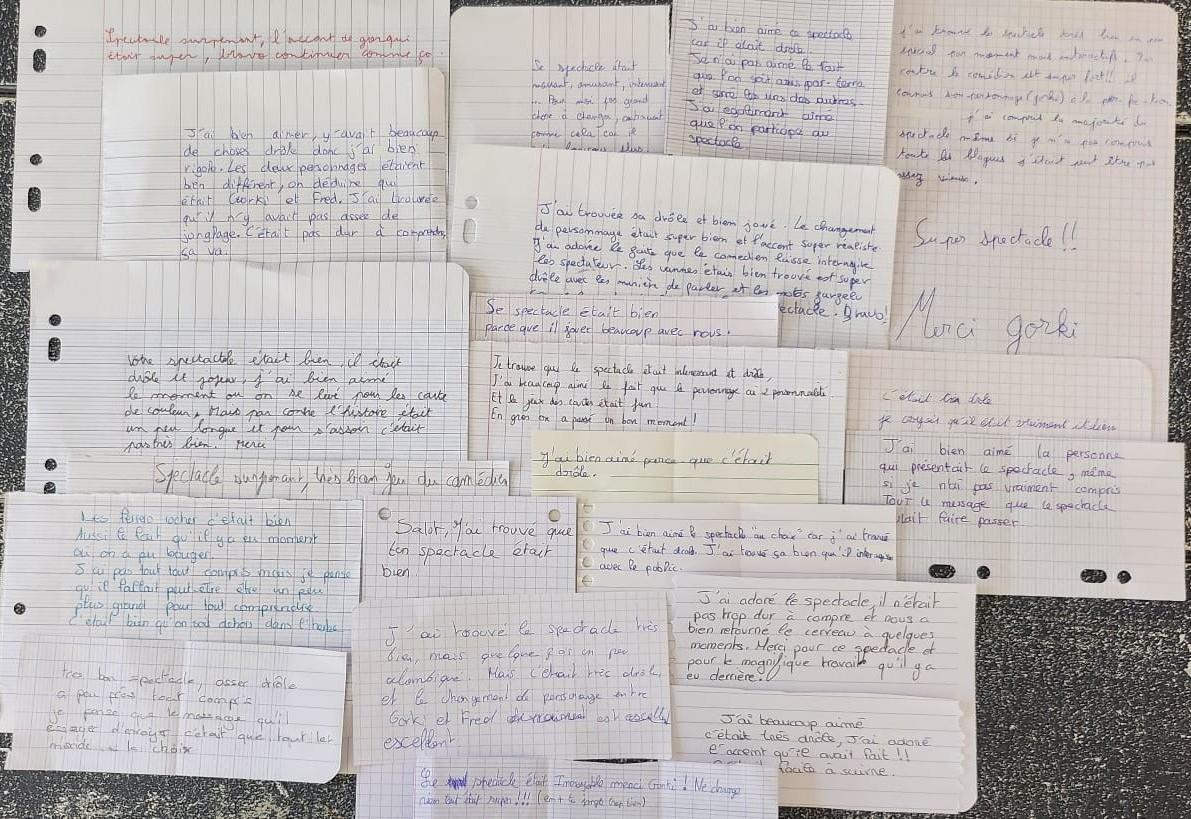 Spectacle surprenant, l'accent de gorki
était super, bravo continuer comme ça
J'ai bien aimer, y'avait beaucoup
de choses drôle donc j'ai bien
rigole. Les deux personnages étaient
bien différent, on déduire qui
était Gorki et Fred. J'ai trouvée
qu'il n'y avait pas assee de
jonglage. C'était pas dur à comprendre,
sa va.
Se spectacle était
amusant, interessant
pas grand
chose à changer, continuez
comme cela car
J'ai bien aimé ce spectacle
car il était drôle
Je n'ai pas aimé le fait
que l'on soit assis par-terre
et serré les uns des autres.
J'ai egalement aimé
que l'on participe au
spectacle.
j'ai trouvé le spectacle très bien un peu
spécial par moment mais interactifs. Par
contre le comédien est super fort!! il
connais son personnage (gorki) à la
j'ai compris la majorité du
spectacle même si je n'ai pas compris
toute les blagues j'était peut être pas
assez
Super spectacle!!
Merci gorki
J'ai trouvée sa drôle et bien joué. Le changement
de personnage était super bien et l'accent super realiste
J'ai adorée le faite que le comedien laisse interagire
les spectateur. Les vannes étais bien trouvé est super
drôle avec les manière de parler et les motes
ectacle. Bravo!
Se spectacle était bien
parce que il jouer beaucoup avec nous.
Votre spectactole était bien, il était
drôle et joyeux, j'ai bien aimé
le moment ou on se levé pour les carte
de couleur, Mais par contre l'histoire était
un peu longue et pour s'assoir c'était
pas très bien. Merci
Je trouve que le spectacle était interessant et drôle,
J'ai beaucoup aimé le fait que le personnage ai 2 personnalité.
Et le jeux des cartes était fun.
En gros on a passé un bon moment!
C'était très drole
je croyais qu'il était vraiment italien
J'ai bien aimé la personne
qui présentait le spectacle, même
si je n'ai pas vraiment compris
TOUT le message que le spectacle
voulait faire passer.
J'ai bien aimé parce que c'était
drôle.
Spectacle surprenant, très bien jeu du comédien
Les ferrero rocher c'était bien
Aussi le fait qu'il y a eu un moment
ou on a pu bouger.
J'ai pas tout tout compris mais je pense
qu'il fallait peut-être être un peu
plus grand pour tout comprendre
C'était bien qu'on soit dehors dans l'herbe
Salut, J'ai trouvé que
ton spectacle était
bien.
J'ai bien aimé le spectacle "au choix" car j'ai trouvé
que c'était drole. J'ai trouvé sa bien qu'il interagisse
avec le public.
J'ai adoré le spectacle, il n'était
pas trop dur à compre et nous a
bien retourné le cerveau à quelques
moments. Merci pour ce spectacle et
pour le magnifique travaille qu'il y a
eu derrière!
J'ai trouvé le spectacle très
bien, mais quelque fois un peu
alambiqué. Mais c'était très drôle,
et le changement de personnage entre
Gorki et Fred est
excellent
très bon spectacle, asser drôle
a peu près tout compris
je pense que le message qu'il
essayer d'envoyé c'était que tout les
monde a le choix
J'ai beaucoup aimé
c'était très drôle, J'ai adoré
l'accent qu'il avait fait!!
facile à suivre.
Le spectacle était Incroyable merci Gorki! Ne change
rien tout était super!!! (em+ tu jongle trop bien)